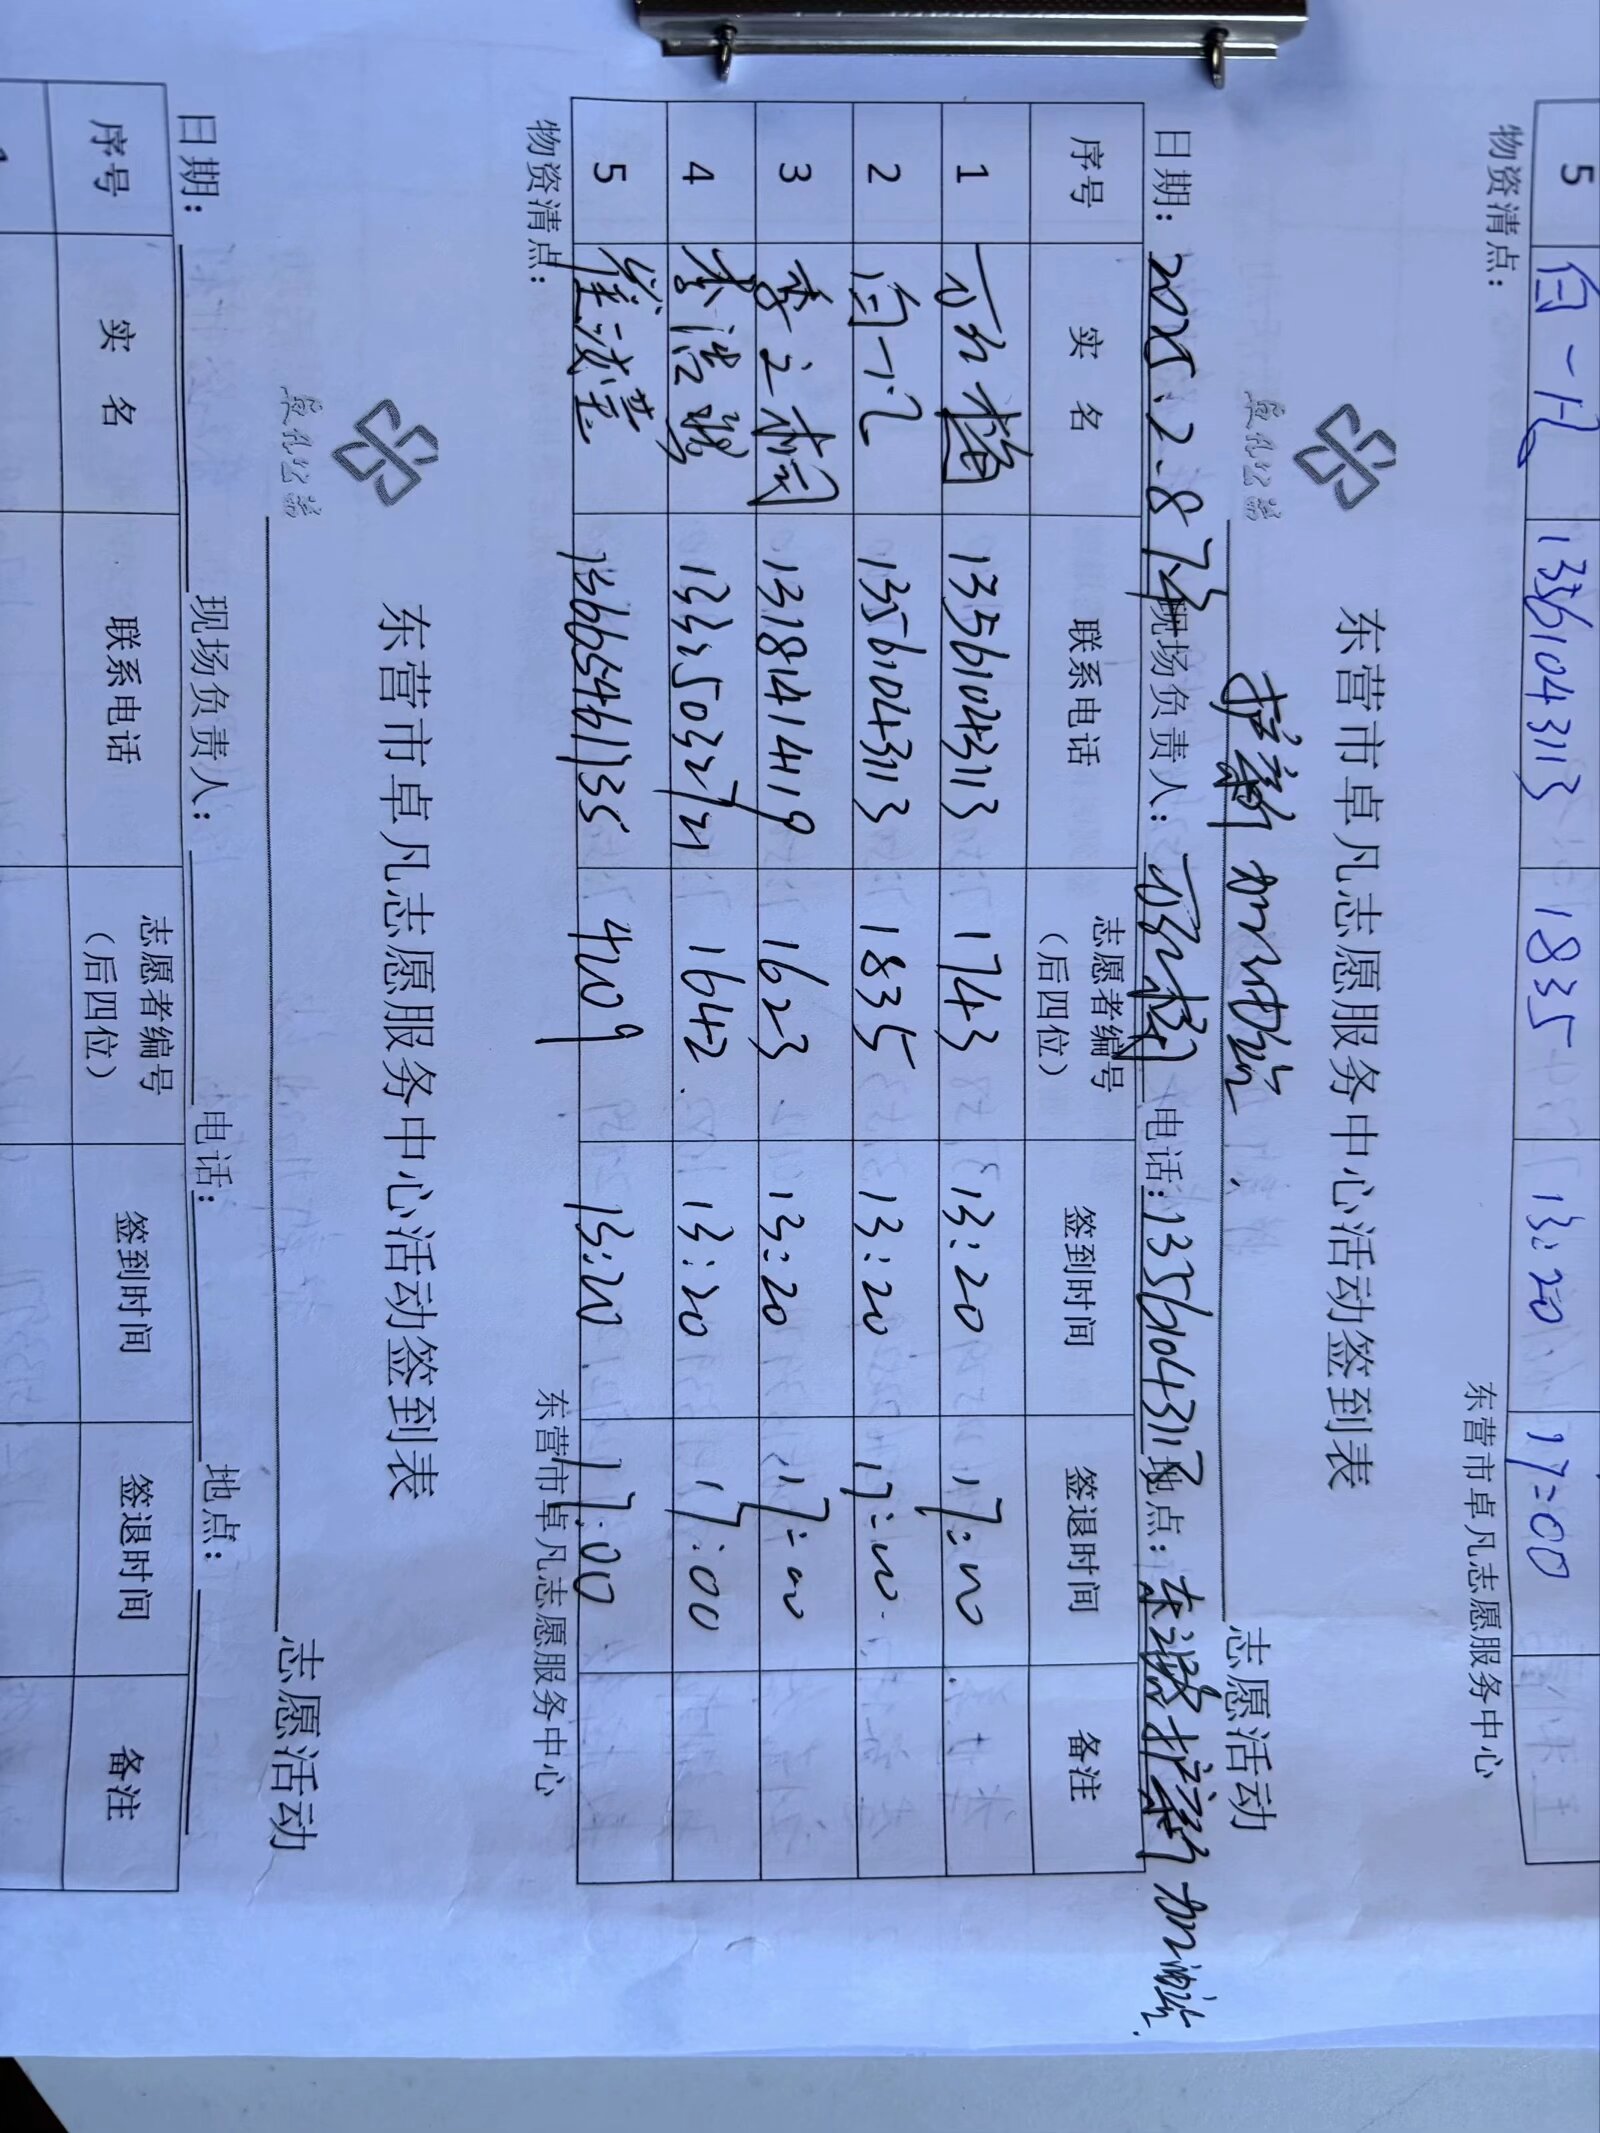 5 白一凡 13561043113 1835 13:20 17:00
物资清点： 东营市卓凡志愿服务中心
东营市卓凡志愿服务中心活动签到表
加油站 志愿活动
日期： 2025.2.8 现场负责人： 电话：13561043113 地点： 加油站
序号 实 名 联系电话 志愿者编号（后四位） 签到时间 签退时间 备注
1 13561043113 1743 13:20 17:00
2 白一凡 13561043113 1835 13:20 17:00
3 李文桐 13181414119 1623 13:20 17:00
4 李浩 1642 13:20 17:00
5 崔 13665461735 4209 13:20 17:00
物资清点： 东营市卓凡志愿服务中心
东营市卓凡志愿服务中心活动签到表
志愿活动
日期： 现场负责人： 电话： 地点：
序号 实 名 联系电话 志愿者编号（后四位） 签到时间 签退时间 备注